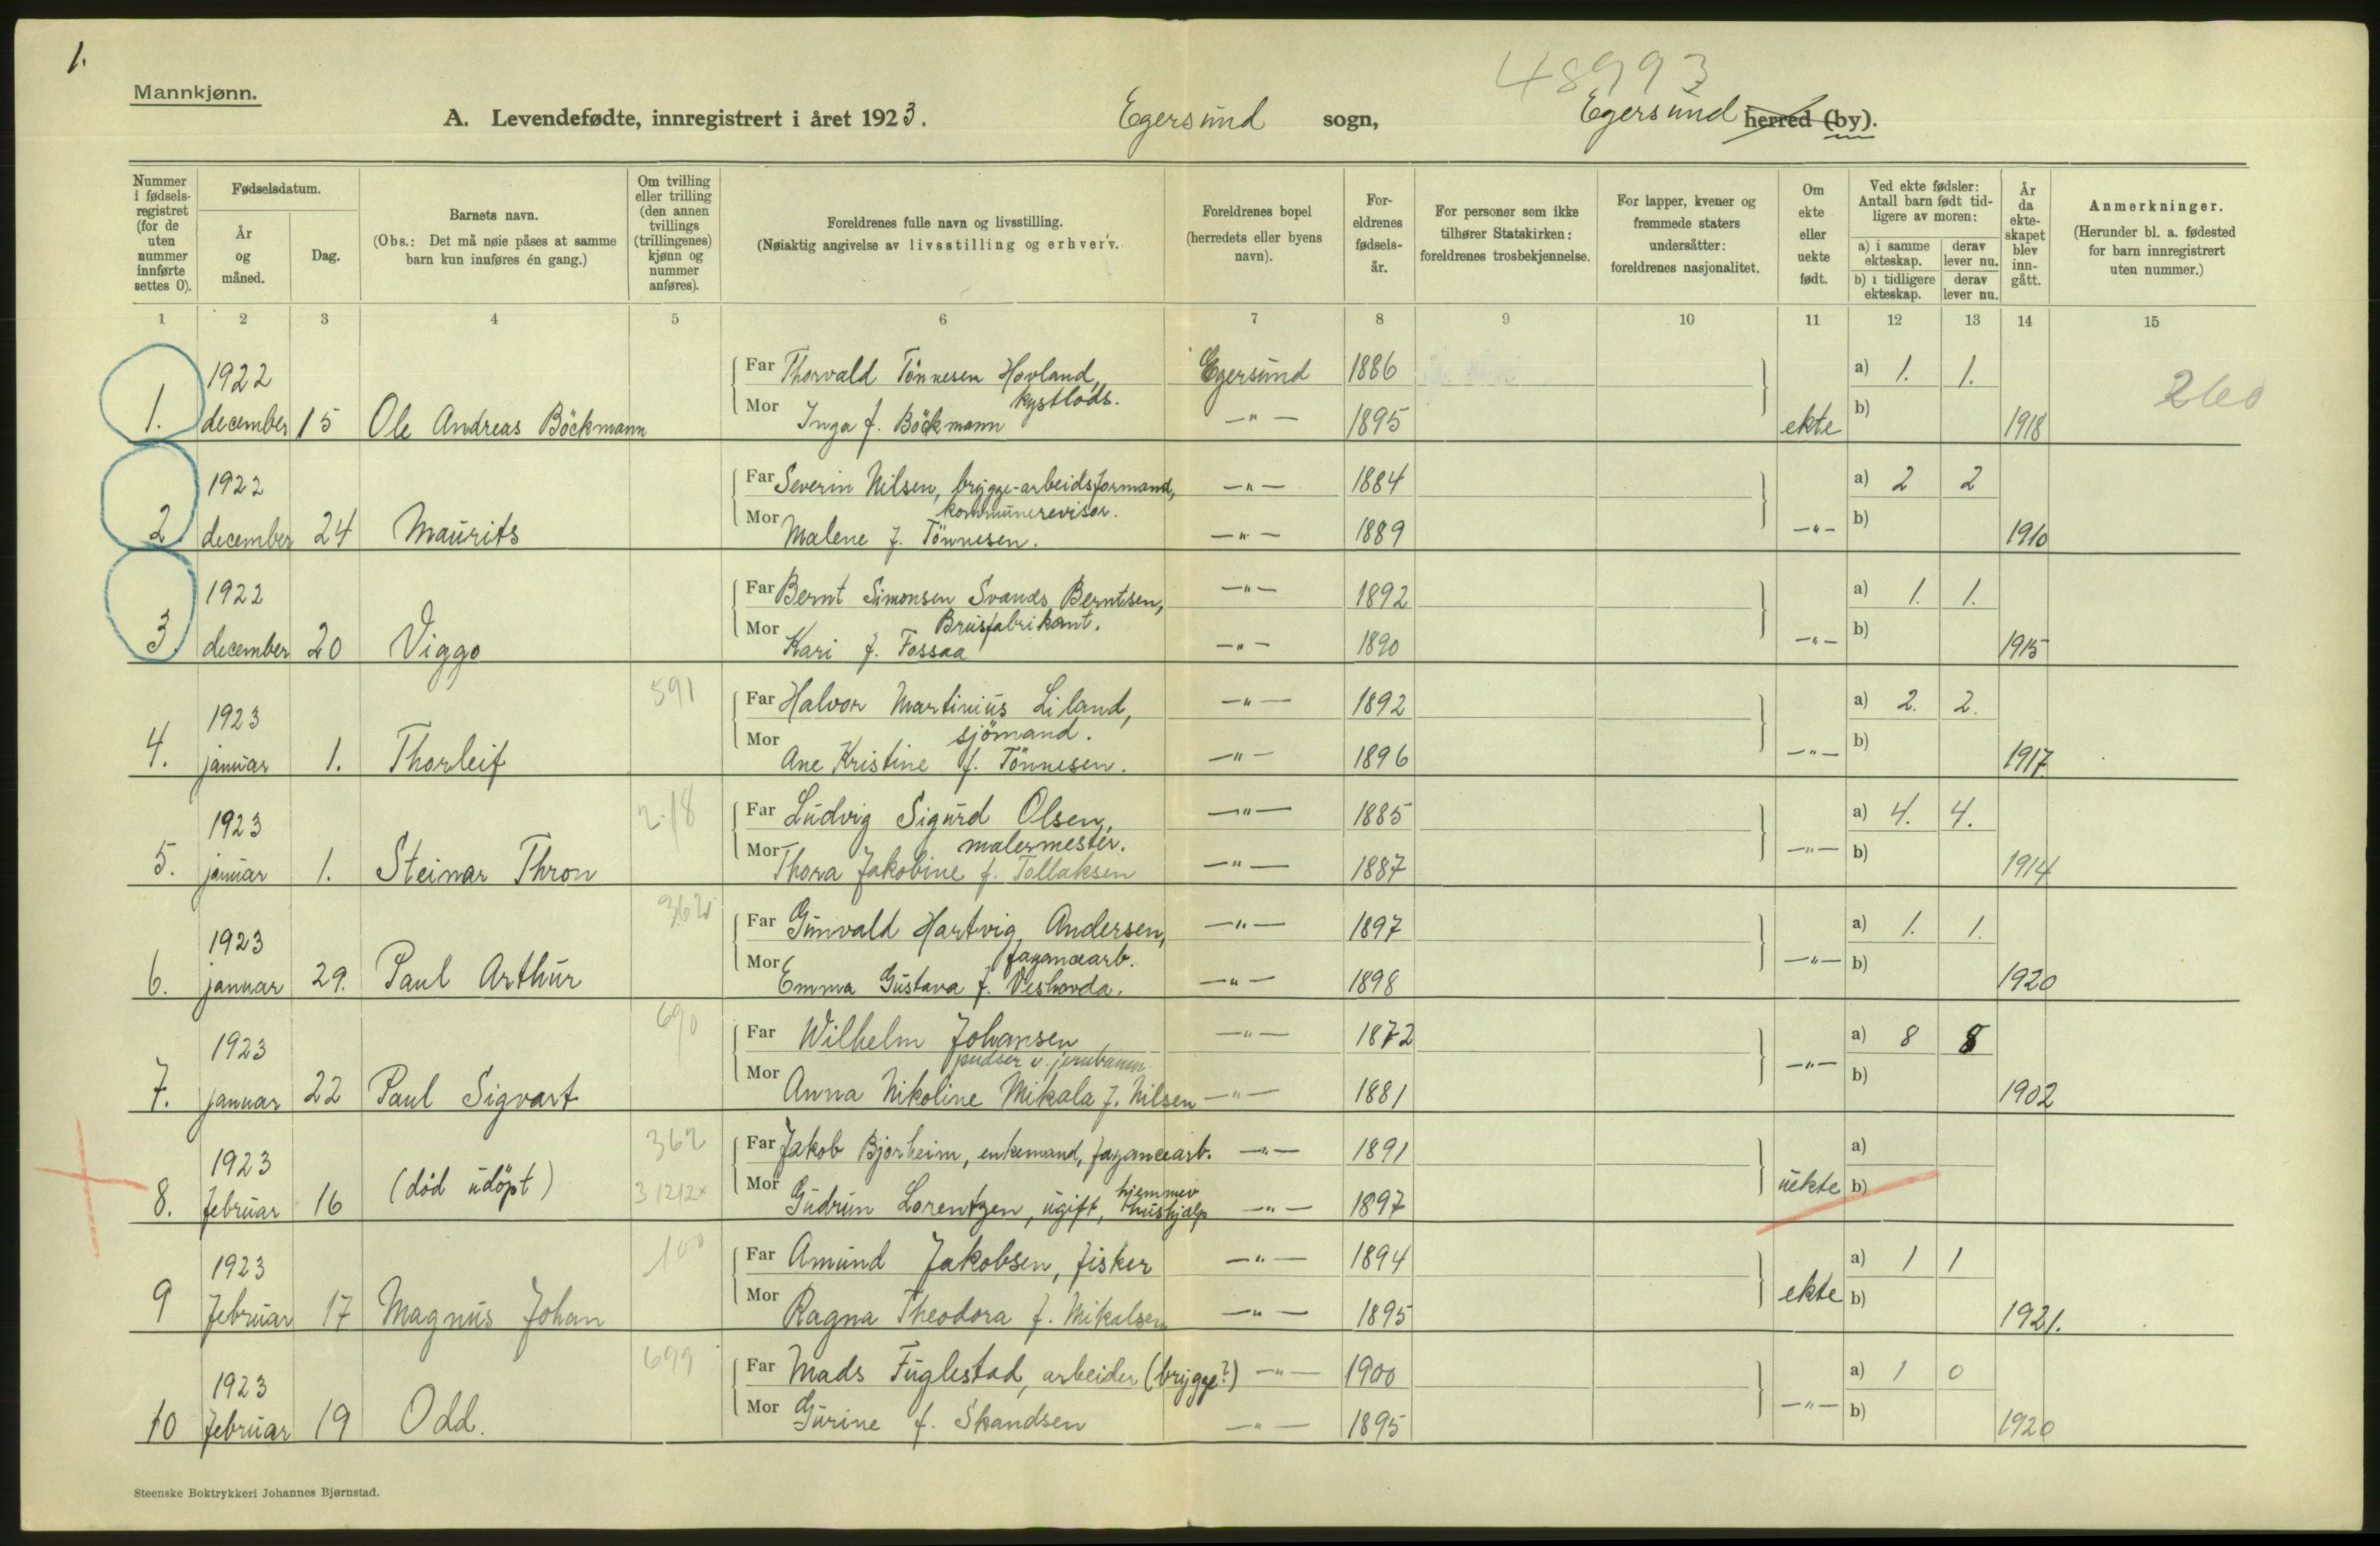 1.
48993
Mannkjønn.
A. Levendefødte, innregistrert i året 1923. Egersund sogn, Egersund herred (by).
Nummer i fødsels-registret (for de uten nummer innførte settes 0).
Fødselsdatum.
År og måned.
Dag.
Barnets navn.
(Obs.: Det må nøie påses at samme barn kun innføres én gang.)
Om tvilling eller trilling (den annen tvillings (trillingenes) kjønn og nummer anføres).
Foreldrenes fulle navn og livsstilling.
(Nøiaktig angivelse av livsstilling og erhverv.
Foreldrenes bopel (herredets eller byens navn).
For-eldrenes fødsels-år.
For personer som ikke tilhører Statskirken: foreldrenes trosbekjennelse.
For lapper, kvener og fremmede staters undersåtter: foreldrenes nasjonalitet.
Om ekte eller uekte født.
Ved ekte fødsler: Antall barn født tid-ligere av moren:
a) i samme ekteskap. derav lever nu.
b) i tidligere ekteskap. derav lever nu.
År da ekte-skapet blev inn-gått.
Anmerkninger.
(Herunder bl. a. fødested for barn innregistrert uten nummer.)
1 2 3 4 5 6 7 8 9 10 11 12 13 14 15
1922 Far Thorvald Tönnesen Hovland, Egersund 1886 a) 1. 1. 260
kystlods.
1. december 15 Ole Andreas Böckmann Mor Inga f. Böckmann —"— 1895 ekte b) 1918
1922 Far Severin Nilsen, brygge-arbeidsformand, —"— 1884 a) 2 2
kommunerevisor.
2. december 24 Maurits Mor Malene f. Tönnesen. —"— 1889 —"— b) 1910
1922 Far Bernt Simonsen Svanes Berntsen, —"— 1892 a) 1. 1.
Brusfabrikant.
3. december 20 Viggo Mor Kari f. Fossaa —"— 1890 —"— b) 1915
591
1923 Far Halvor Martinius Liland, —"— 1892 a) 2. 2.
sjömand.
4. januar 1. Thorleif Mor Ane Kristine f. Tönnesen. —"— 1896 —"— b) 1917
218
1923 Far Ludvig Sigurd Olsen, —"— 1885 a) 4. 4.
malermester.
5. januar 1. Steinar Thron Mor Thora Jakobine f. Tollaksen —"— 1887 —"— b) 1914
362
1923 Far Gunvald Hartvig Andersen, —"— 1897 a) 1. 1.
fayancearb.
6. januar 29. Paul Arthur Mor Emma Gustava f. Veshovda. —"— 1898 —"— b) 1920
690
1923 Far Wilhelm Johansen, —"— 1872 a) 8 8
pudser v. jernbanen.
7. januar 22 Paul Sigvart Mor Anna Nikoline Mikala f. Nilsen —"— 1881 —"— b) 1902
362
1923 Far Jakob Bjorheim, enkemand, fayancearb. —"— 1891 a)
31212x hjemmev
8. februar 16 (död udöpt) Mor Gudrun Lorentzen, ugift, hushjælp —"— 1897 uekte b)
100
1923 Far Amund Jakobsen, fisker —"— 1894 a) 1 1
9 februar 17 Magnus Johan Mor Ragna Theodora f. Mikalsen —"— 1895 ekte b) 1921.
699
1923 Far Mads Fuglestad, arbeider (brygge?) —"— 1900 a) 1 0
10 februar 19 Odd. Mor Gurine f. Skandsen —"— 1895 —"— b) 1920
Steenske Boktrykkeri Johannes Bjørnstad.